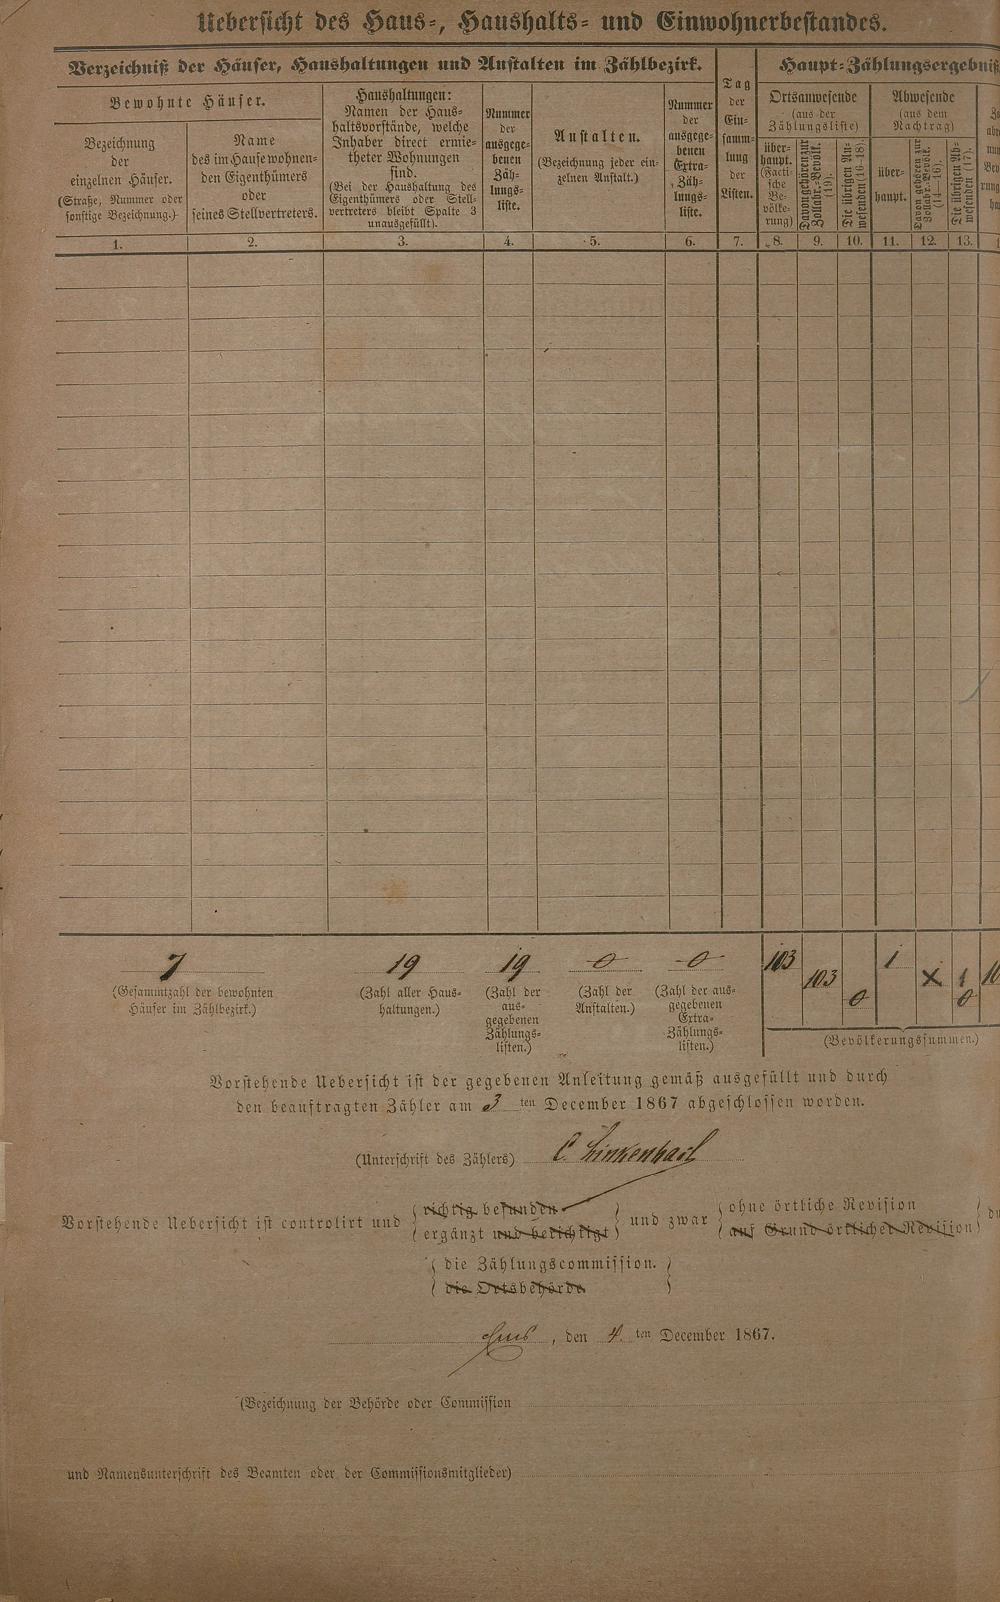 Uebersicht des Haus-, Haushalts- und Einwohnerbestandes.
Verzeichniß der Häuser, Haushaltungen und Anstalten im Zählbezirk.
Bewohnte Häuser.
Bezeichnung
der
einzelnen Häuser.
(Straße, Nummer oder
sonstige Bezeichnung.)
Name
des im Hause wohnen-
den Eigenthümers
oder
seines Stellvertreters.
Haushaltungen:
Namen der Haus-
haltsvorstände, welche
Inhaber direct ermie-
theter Wohnungen
sind.
(Bei der Haushaltung des
Eigenthümers oder Stell-
vertreters bleibt Spalte 3
unausgefüllt).
Nummer
der
ausgege-
benen
Zäh-
lungs-
liste.
Anstalten.
(Bezeichnung jeder ein-
zelnen Anstalt.)
Nummer
der
ausgege-
benen
Extra-
Zäh-
lungs-
liste.
Tag
der
Ein-
samm-
lung
der
Listen.
Haupt-Zählungsergebniß
Ortsanwesende
(aus der
Zählungsliste)
über-
haupt.
(Facti-
sche
Be-
völke-
rung)
Davon gehören zur
Zollabr.-Bevölk.
(19).
Die übrigen An-
wesenden (16-18).
Abwesende
(aus dem
Nachtrag)
über-
haupt.
Davon gehören zur
Zollabr.-Bevölk.
(14-16).
Die übrigen Ab-
wesenden (17).
1. 2. 3. 4. 5. 6. 7. 8. 9. 10. 11. 12. 13.
7 19 19 0 0 103 103 0 1 x 1 0
(Gesammtzahl der bewohnten
Häuser im Zählbezirk.)
(Zahl aller Haus-
haltungen.)
(Zahl der
aus-
gegebenen
Zählungs-
listen.)
(Zahl der
Anstalten.)
(Zahl der aus-
gegebenen
Extra-
Zählungs-
listen.)
(Bevölkerungssummen.)
Vorstehende Uebersicht ist der gegebenen Anleitung gemäß ausgefüllt und durch
den beauftragten Zähler am 3 ten December 1867 abgeschlossen worden.
(Unterschrift des Zählers) C. Linkenbach
richtig befunden
Vorstehende Uebersicht ist controlirt und ergänzt und berichtigt und zwar ohne örtliche Revision
auf Grund örtlicher Revision
die Zählungscommission.
die Ortsbehörde
Ems, den 4. ten December 1867.
(Bezeichnung der Behörde oder Commission
und Namensunterschrift des Beamten oder der Commissionsmitglieder)